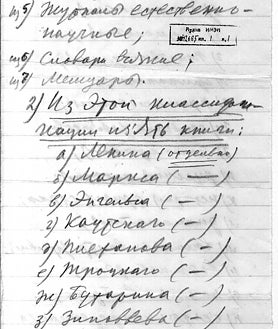 ш5) Журналы естественно-
научные;
ш6) Словари всякие;
ш7) Мемуары.
2) Из этой классифи-
кации изъять книги:
а) Ленина (отдельно)
б) Маркса (—)
в) Энгельса (—)
г) Каутского (—)
д) Плеханова (—)
е) Троцкого (—)
ж) Бухарина (—)
з) Зиновьева (—)